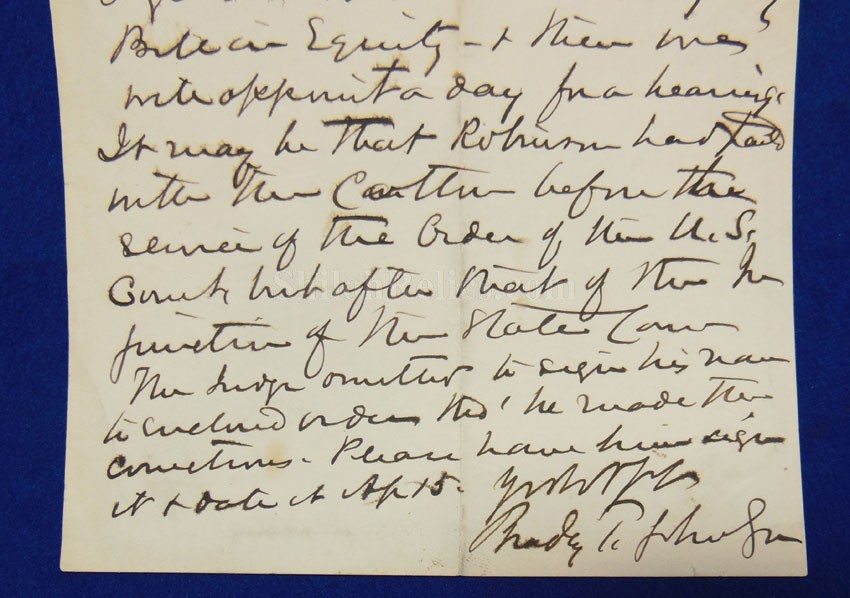 Bill in Equity - & then we
will appoint a day for a hearing.
It may be that Robinson had
with the before the
service of the Order of the U.S.
Court, but after that of the In
junction of the State Court
The Judge omitted to sign his name
to enclosed order tho' he made the
corrections. Please have him sign
it & date it Ap 15.
Bradley T. Johnson